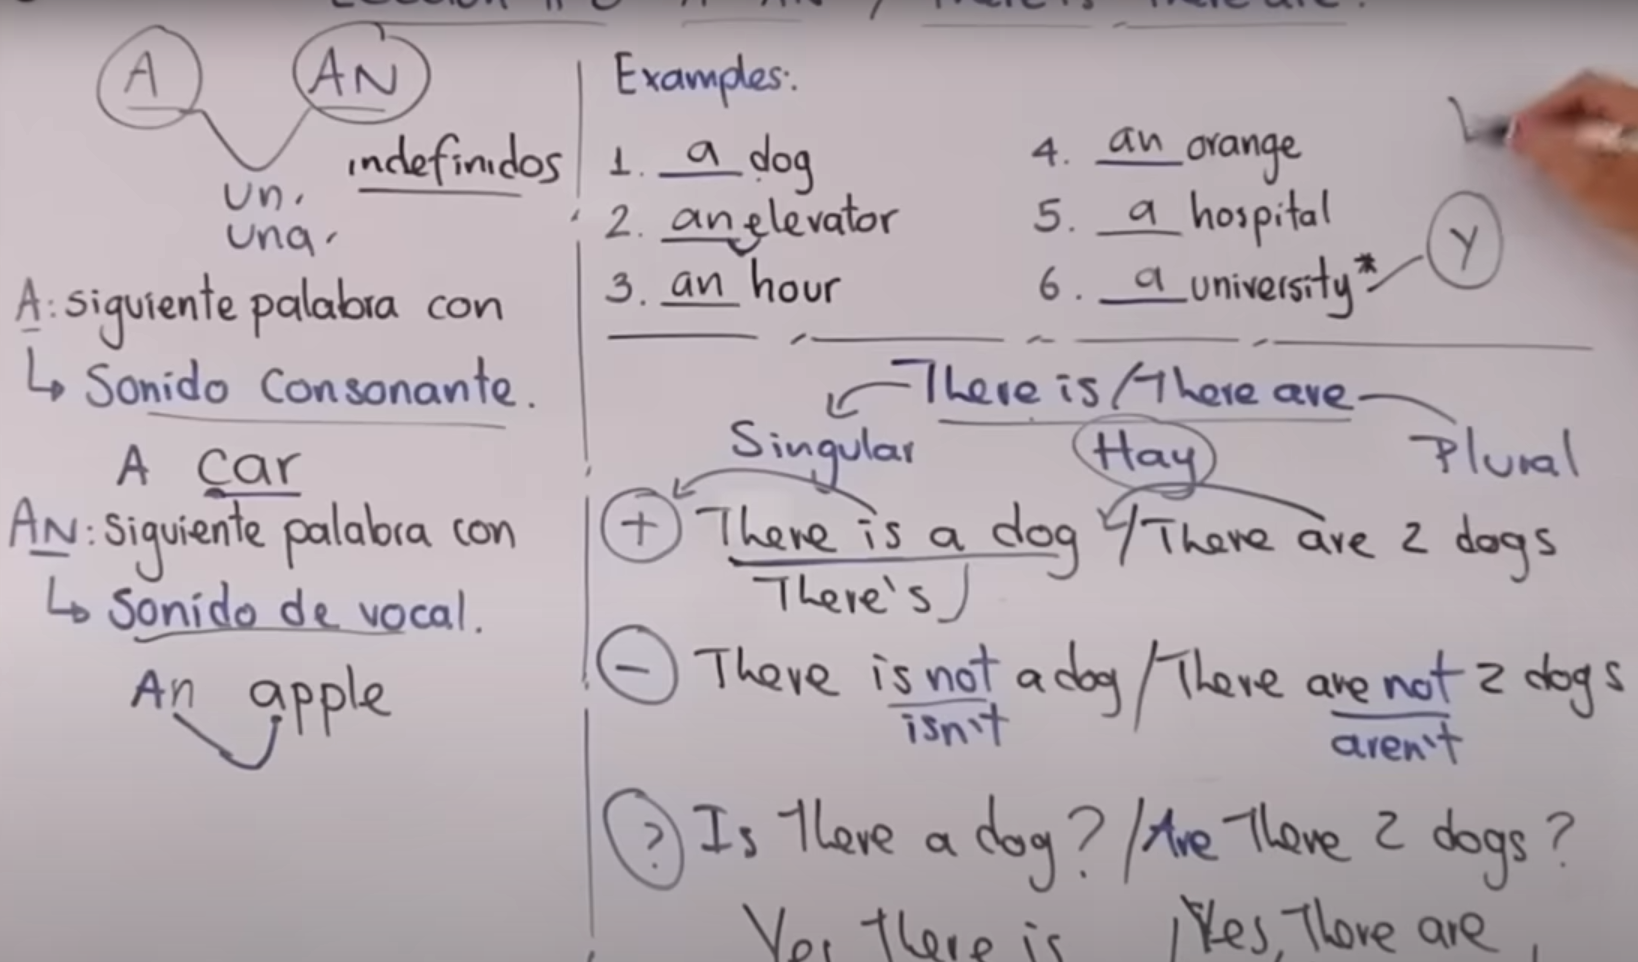 A AN
indefinidos
un.
una.
A: siguiente palabra con
↳ Sonido Consonante.
A car
AN: siguiente palabra con
↳ Sonido de vocal.
An apple
Examples:
1. a dog
2. an elevator
3. an hour
4. an orange
5. a hospital
6. a university* Y
There is / There are
Singular Hay Plural
+ There is a dog / There are 2 dogs
There's
- There is not a dog / There are not 2 dogs
isn't aren't
? Is there a dog? / Are there 2 dogs?
Yes, there is / Yes, there are